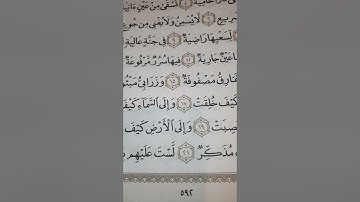 تُسْقَىٰ مِنْ عَيْنٍ ءَانِيَةٍ
ضَرِيعٍ ٦ لَّا يُسْمِنُ وَلَا يُغْنِي مِن جُوعٍ
لِّسَعْيِهَا رَاضِيَةٌ ٩ فِي جَنَّةٍ عَالِيَةٍ
جَارِيَةٌ ١٢ فِيهَا سُرُرٌ مَّرْفُوعَةٌ
مَصْفُوفَةٌ ١٥ وَزَرَابِيُّ مَبْثُو
كَيْفَ خُلِقَتْ ١٧ وَإِلَى ٱلسَّمَآءِ كَيْفَ
نُصِبَتْ ١٩ وَإِلَى ٱلْأَرْضِ كَيْفَ
مُذَكِّرٌ ٢١ لَّسْتَ عَلَيْهِم
٥٩٢